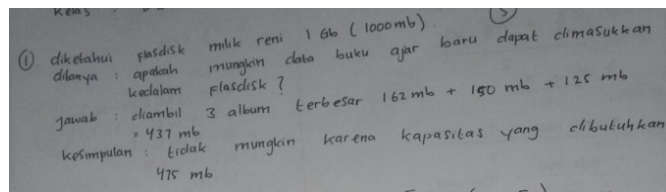 Kelas :
3
① diketahui flasdisk milik reni 1 Gb (1000mb).
ditanya : apakah mungkin data buku ajar baru dapat dimasukkan
kedalam flasdisk ?
jawab : diambil 3 album terbesar 162 mb + 150 mb + 125 mb
= 437 mb
kesimpulan : tidak mungkin karena kapasitas yang dibutuhkan
475 mb